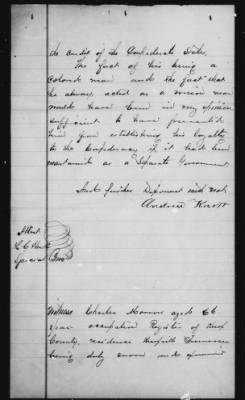 the credit of the Confederate States.
The fact of his being a
colored man and the fact that
he always acted as a union man
must have been in my opinion
sufficient to have prevented
him from establishing his loyalty
to the Confederacy if it had been
maintained as a Separate Government
And further Deponent saith not.
Andrew Knott
Attest
Special
Witness Charles aged 66
years occupation Register of
County, residence Tennessee
being duly sworn and examined